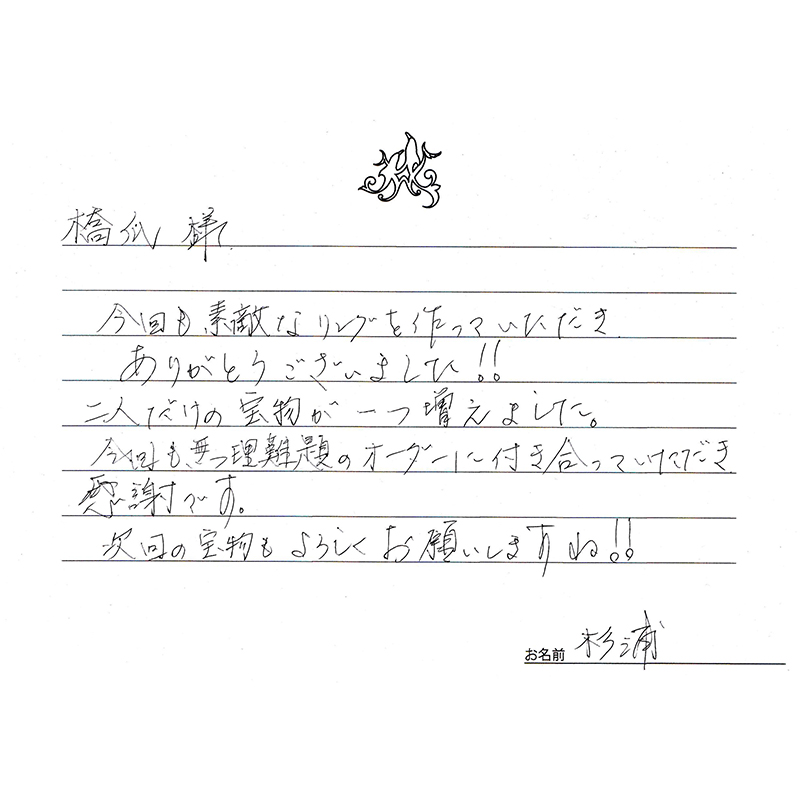 橋爪 様
今回も素敵なリングを作っていただき
ありがとうございました!!
二人だけの宝物が一つ増えました。
今回も無理難題のオーダーに付き合っていただき
感謝です。
次回の宝物もよろしくお願いしますね!!
お名前 杉浦